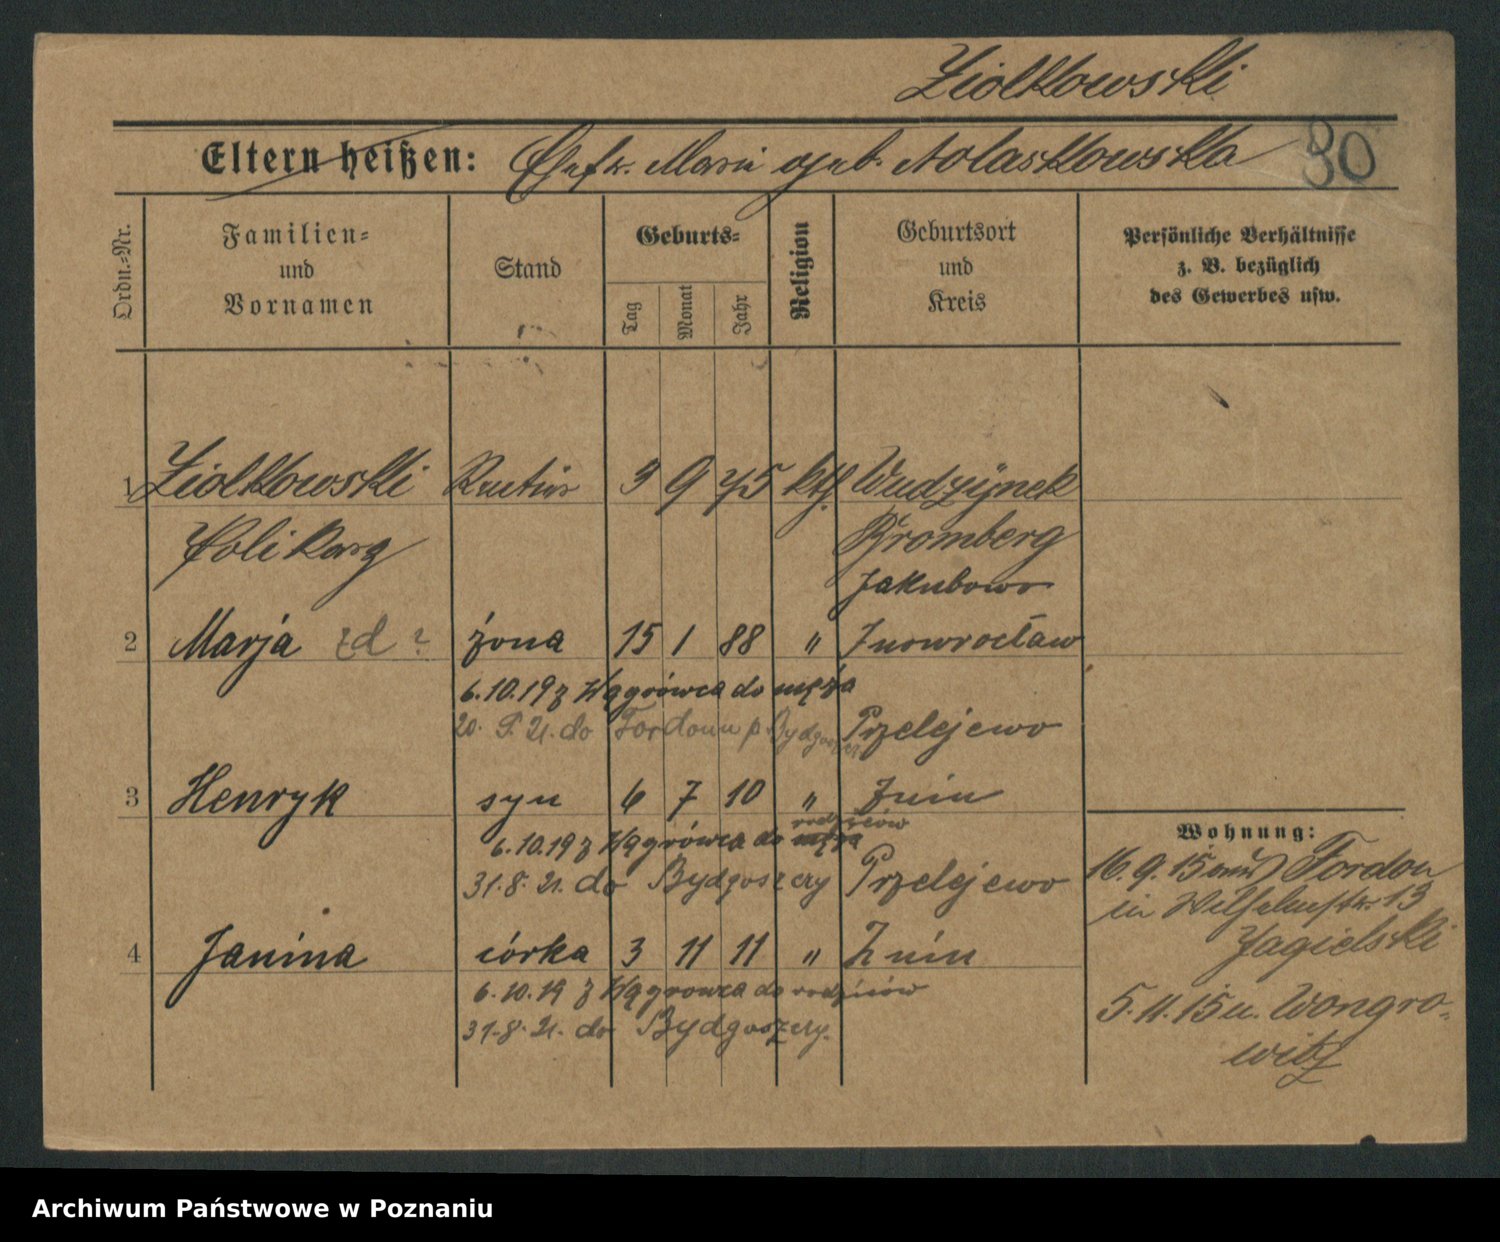 Ziolkowski
Eltern heißen: Ehefr. Maria geb. Nolaskowska
30
Ordn.-Nr.
Familien-
und
Vornamen
Stand
Geburts-
Tag
Monat
Jahr
Religion
Geburtsort
und
Kreis
Persönliche Verhältnisse
z. B. bezüglich
des Gewerbes usw.
1 Ziolkowski 9 75 kth. Wudzynek
Polikarp Bromberg
Jakubowo
2 Marja żona 15 1 88 " Inowrocław
6.10.19 z Wągrówca do męża
20. 21. do Fordonu p. Bydgoszcz Przelejewo
3 Henryk syn 6 7 10 " Znin
rodziców
6.10.19 z Wągrówca do męża
31.8.21. do Bydgoszczy Przelejewo
4 Janina córka 3 11 11 " Znin
6.10.19 z Wągrowca do rodziców
31.8.21. do Bydgoszczy.
Wohnung:
16.9.15 aus Fordon
in Wilhelmstr. 13
Jagielski
5.11.15 n. Wongro-
witz
Archiwum Państwowe w Poznaniu